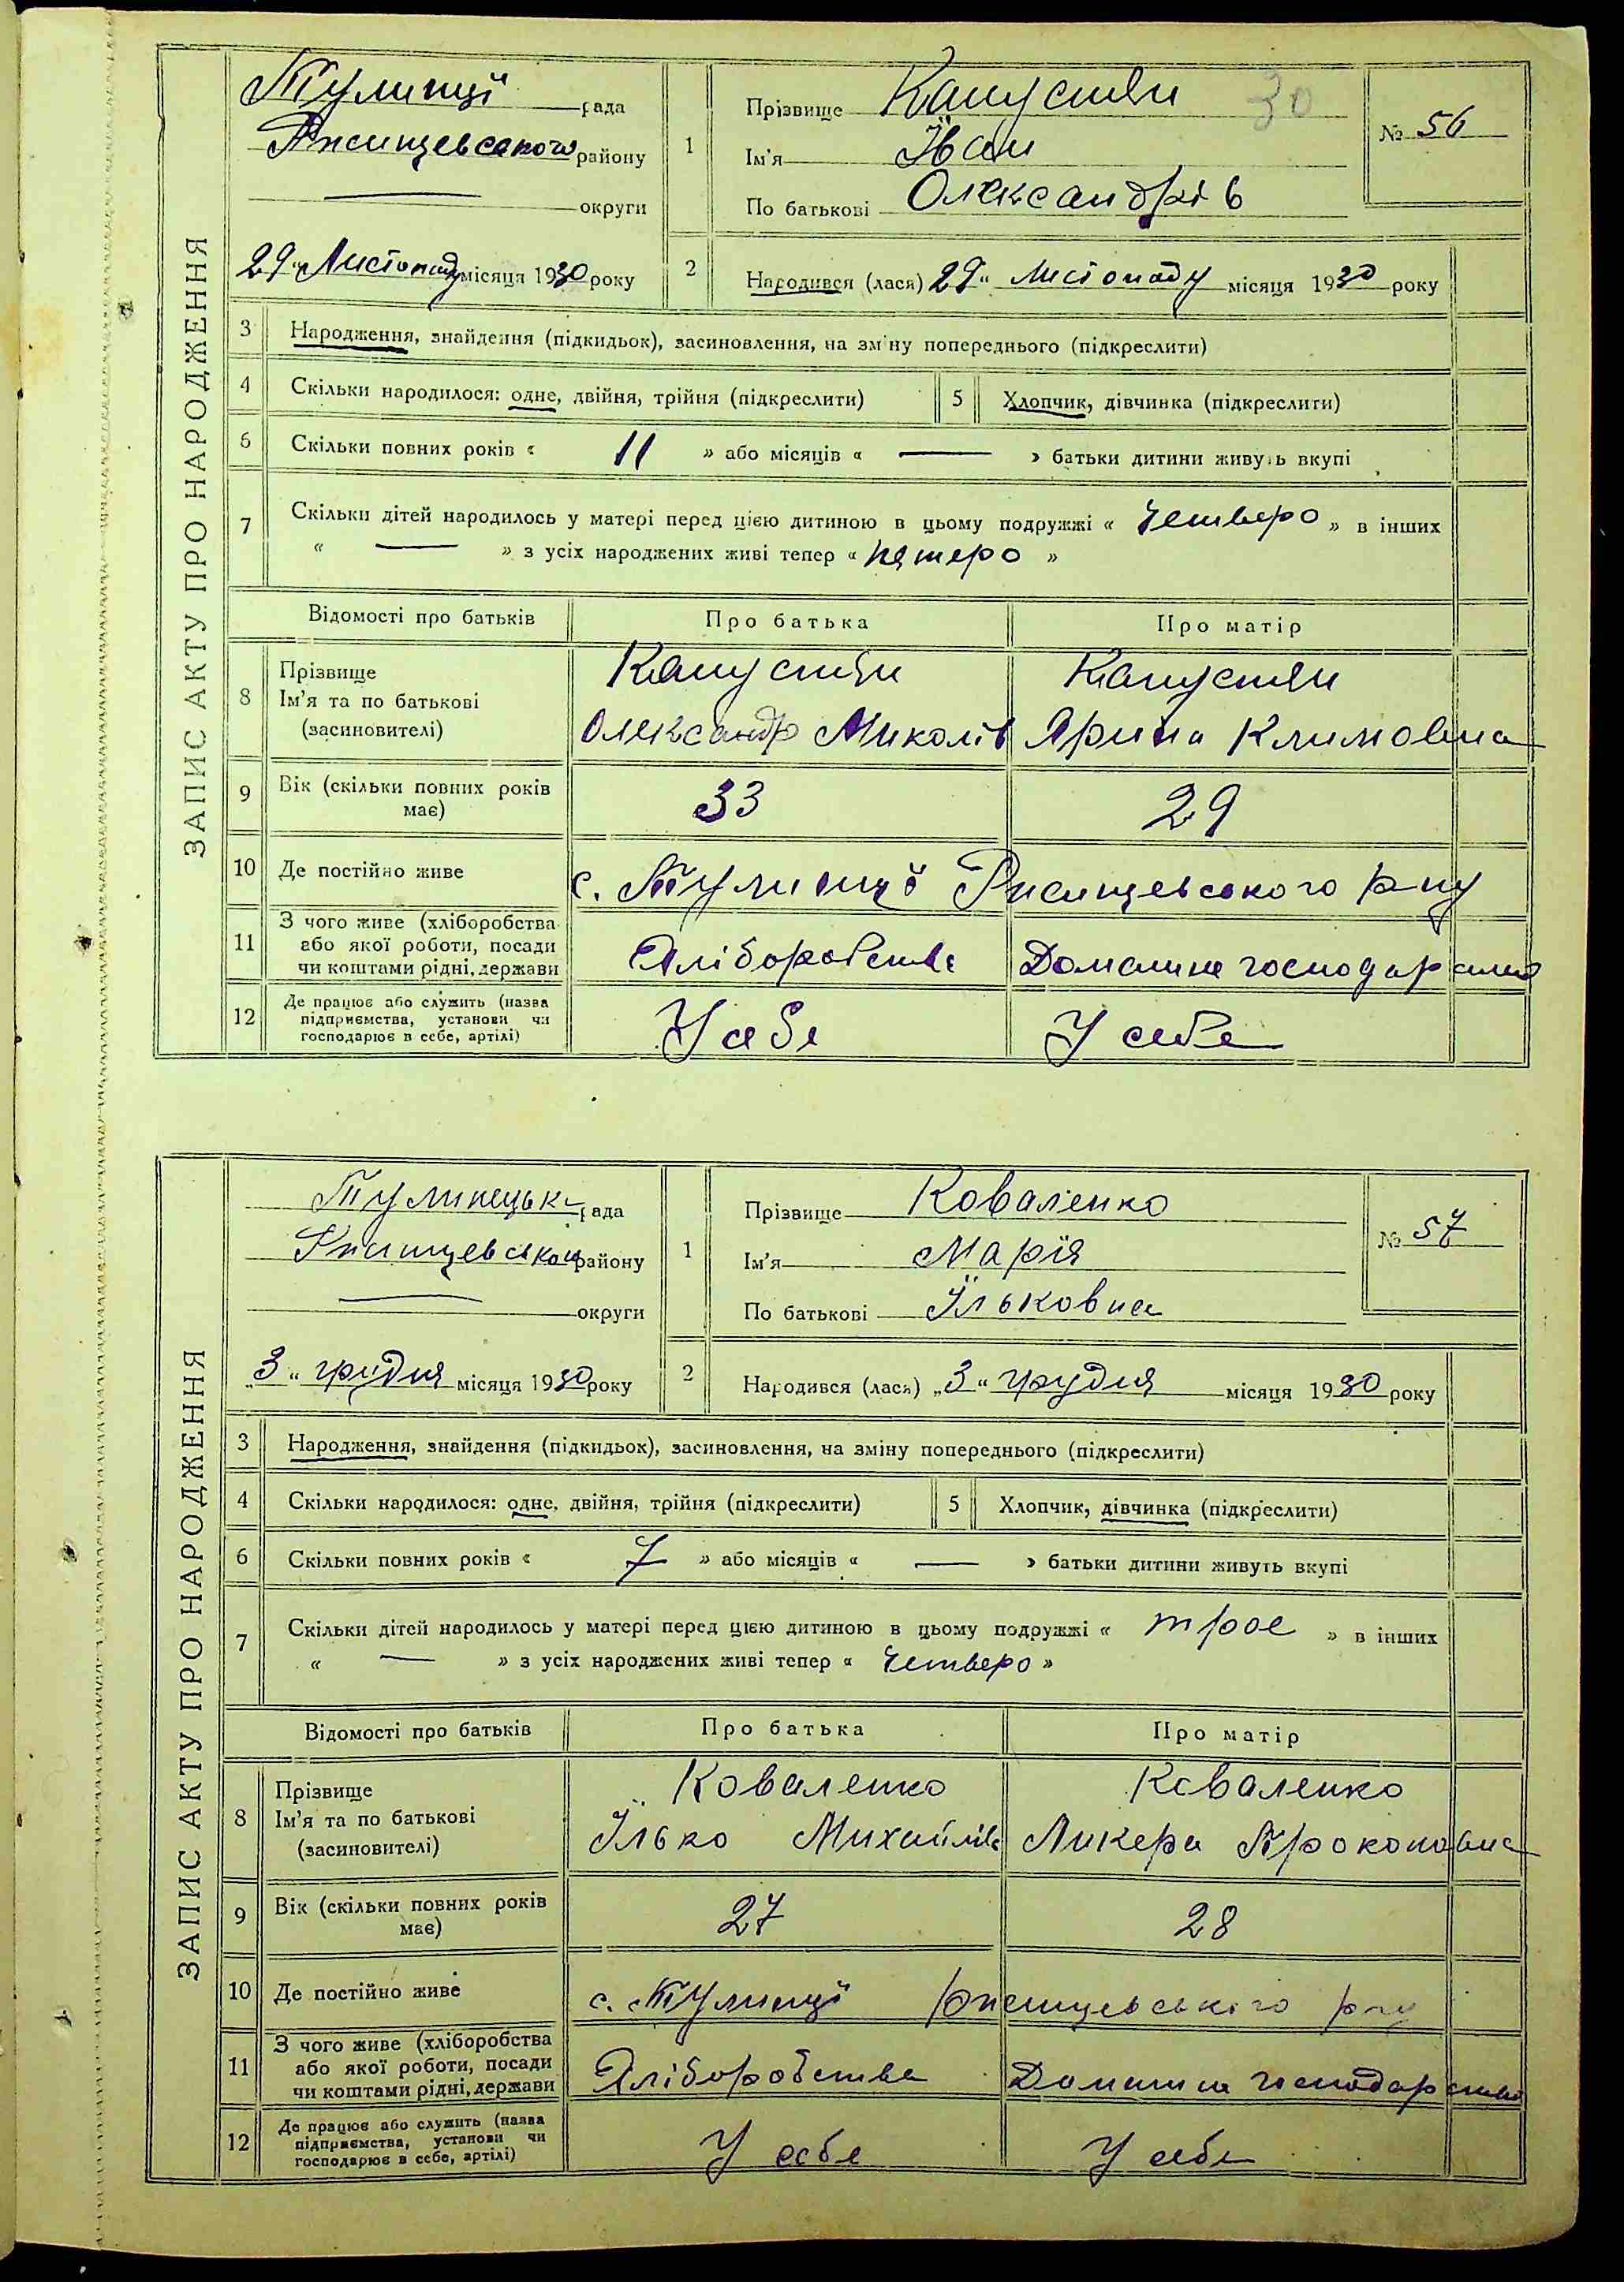 ЗАПИС АКТУ ПРО НАРОДЖЕННЯ
Тулинці рада
Ржищевського району
округи
29 " Листопаду місяця 1930 року
1
Прізвище Капустян 30
Ім'я Іван
По батькові Олександрів
№ 56
2
Народився (лася) 29 " листопаду місяця 1930 року
3 Народження, знайдення (підкидьок), засиновлення, на зміну попереднього (підкреслити)
4 Скільки народилося: одне, двійня, трійня (підкреслити) 5 Хлопчик, дівчинка (підкреслити)
6 Скільки повних років « 11 » або місяців « — » батьки дитини живуть вкупі
7 Скільки дітей народилось у матері перед цією дитиною в цьому подружжі « Четверо » в інших
« — » з усіх народжених живі тепер « пятеро »
Відомості про батьків Про батька Про матір
8 Прізвище Капустян Капустян
Ім'я та по батькові Олександр Миколів Ярина Климовна
(засиновителі)
9 Вік (скільки повних років 33 29
має)
10 Де постійно живе с. Тулинці Ржищевського р-ну
11 З чого живе (хліборобства
або якої роботи, посади Хліборобства Домашнє господарство
чи коштами рідні, держави
12 Де працює або служить (назва
підприємства, установи чи У себе У себе
господарює в себе, артілі)
ЗАПИС АКТУ ПРО НАРОДЖЕННЯ
Тулинецька рада
Ржищевського району
округи
„3 " грудня місяця 1930 року
1
Прізвище Коваленко
Ім'я Марія
По батькові Ільковна
№ 57
2
Народився (лася) „3 " грудня місяця 1930 року
3 Народження, знайдення (підкидьок), засиновлення, на зміну попереднього (підкреслити)
4 Скільки народилося: одне, двійня, трійня (підкреслити) 5 Хлопчик, дівчинка (підкреслити)
6 Скільки повних років « 7 » або місяців « — » батьки дитини живуть вкупі
7 Скільки дітей народилось у матері перед цією дитиною в цьому подружжі « троє » в інших
« — » з усіх народжених живі тепер « Четверо »
Відомості про батьків Про батька Про матір
8 Прізвище Коваленко Коваленко
Ім'я та по батькові Ілько Михайлів Ликера Прокоповна
(засиновителі)
9 Вік (скільки повних років 27 28
має)
10 Де постійно живе с. Тулинці Ржищевського р-ну
11 З чого живе (хліборобства
або якої роботи, посади Хліборобства Домашнє господарство
чи коштами рідні, держави
12 Де працює або служить (назва
підприємства, установи чи У себе У себе
господарює в себе, артілі)